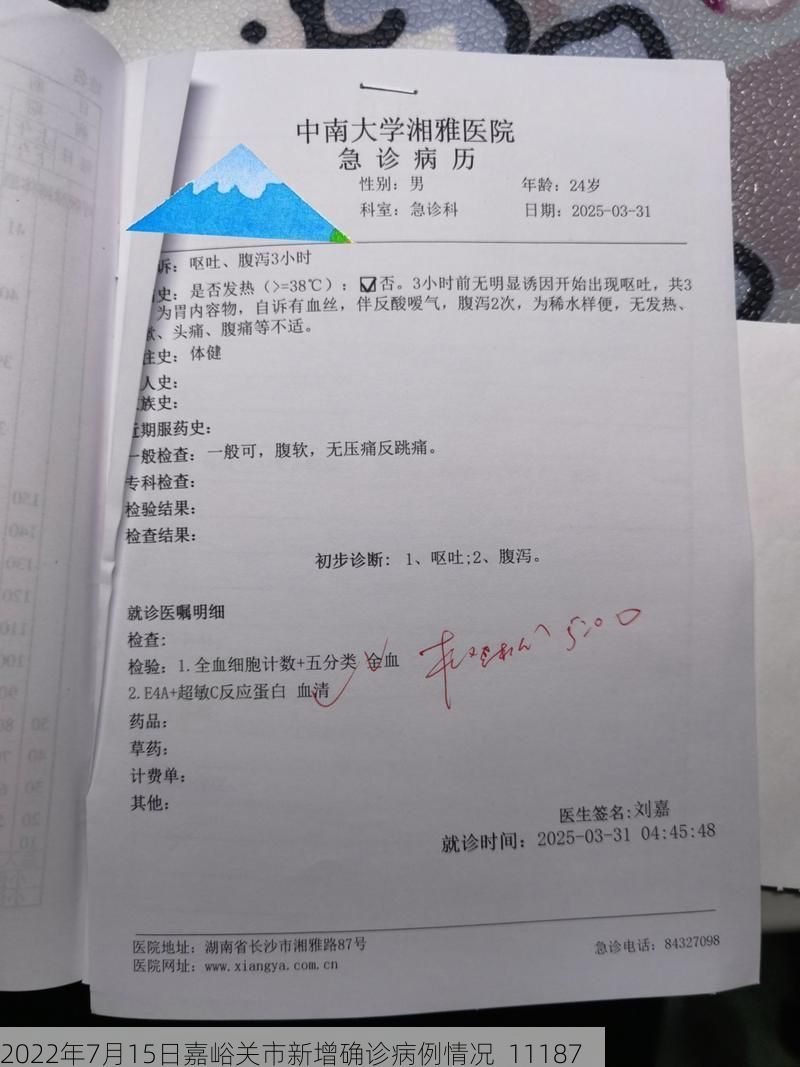 中南大学湘雅医院
急诊病历
性别：男 年龄：24岁
科室：急诊科 日期：2025-03-31
诉：呕吐、腹泻3小时
史：是否发热（>=38℃）：☑否。3小时前无明显诱因开始出现呕吐，共3
为胃内容物，自诉有血丝，伴反酸嗳气，腹泻2次，为稀水样便，无发热、
、头痛、腹痛等不适。
往史：体健
人史：
族史：
近期服药史：
一般检查：一般可，腹软，无压痛反跳痛。
专科检查：
检验结果：
检查结果：
初步诊断：1、呕吐;2、腹泻。
就诊医嘱明细
检查：
检验：1.全血细胞计数+五分类 全血
2.E4A+超敏C反应蛋白 血清
药品：
草药：
计费单：
其他：
医生签名:刘嘉
就诊时间：2025-03-31 04:45:48
医院地址：湖南省长沙市湘雅路87号 急诊电话：84327098
医院网址：www.xiangya.com.cn
2022年7月15日嘉峪关市新增确诊病例情况 11187